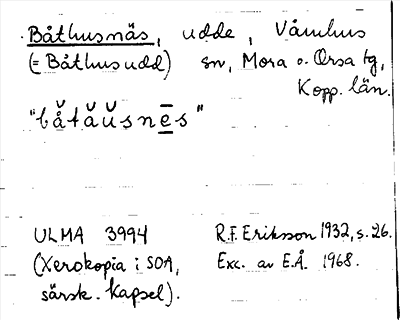 Båthusnäs, udde, Våmhus
(= Båthusudd) sn, Mora o. Orsa tg,
Kopp. län.
"bå̆tă̆ŭsnē̲s"
ULMA 3994 R.F. Eriksson 1932, s. 26.
(Xerokopia i SOA, Exc. av E.Å. 1968.
särsk. kapsel).